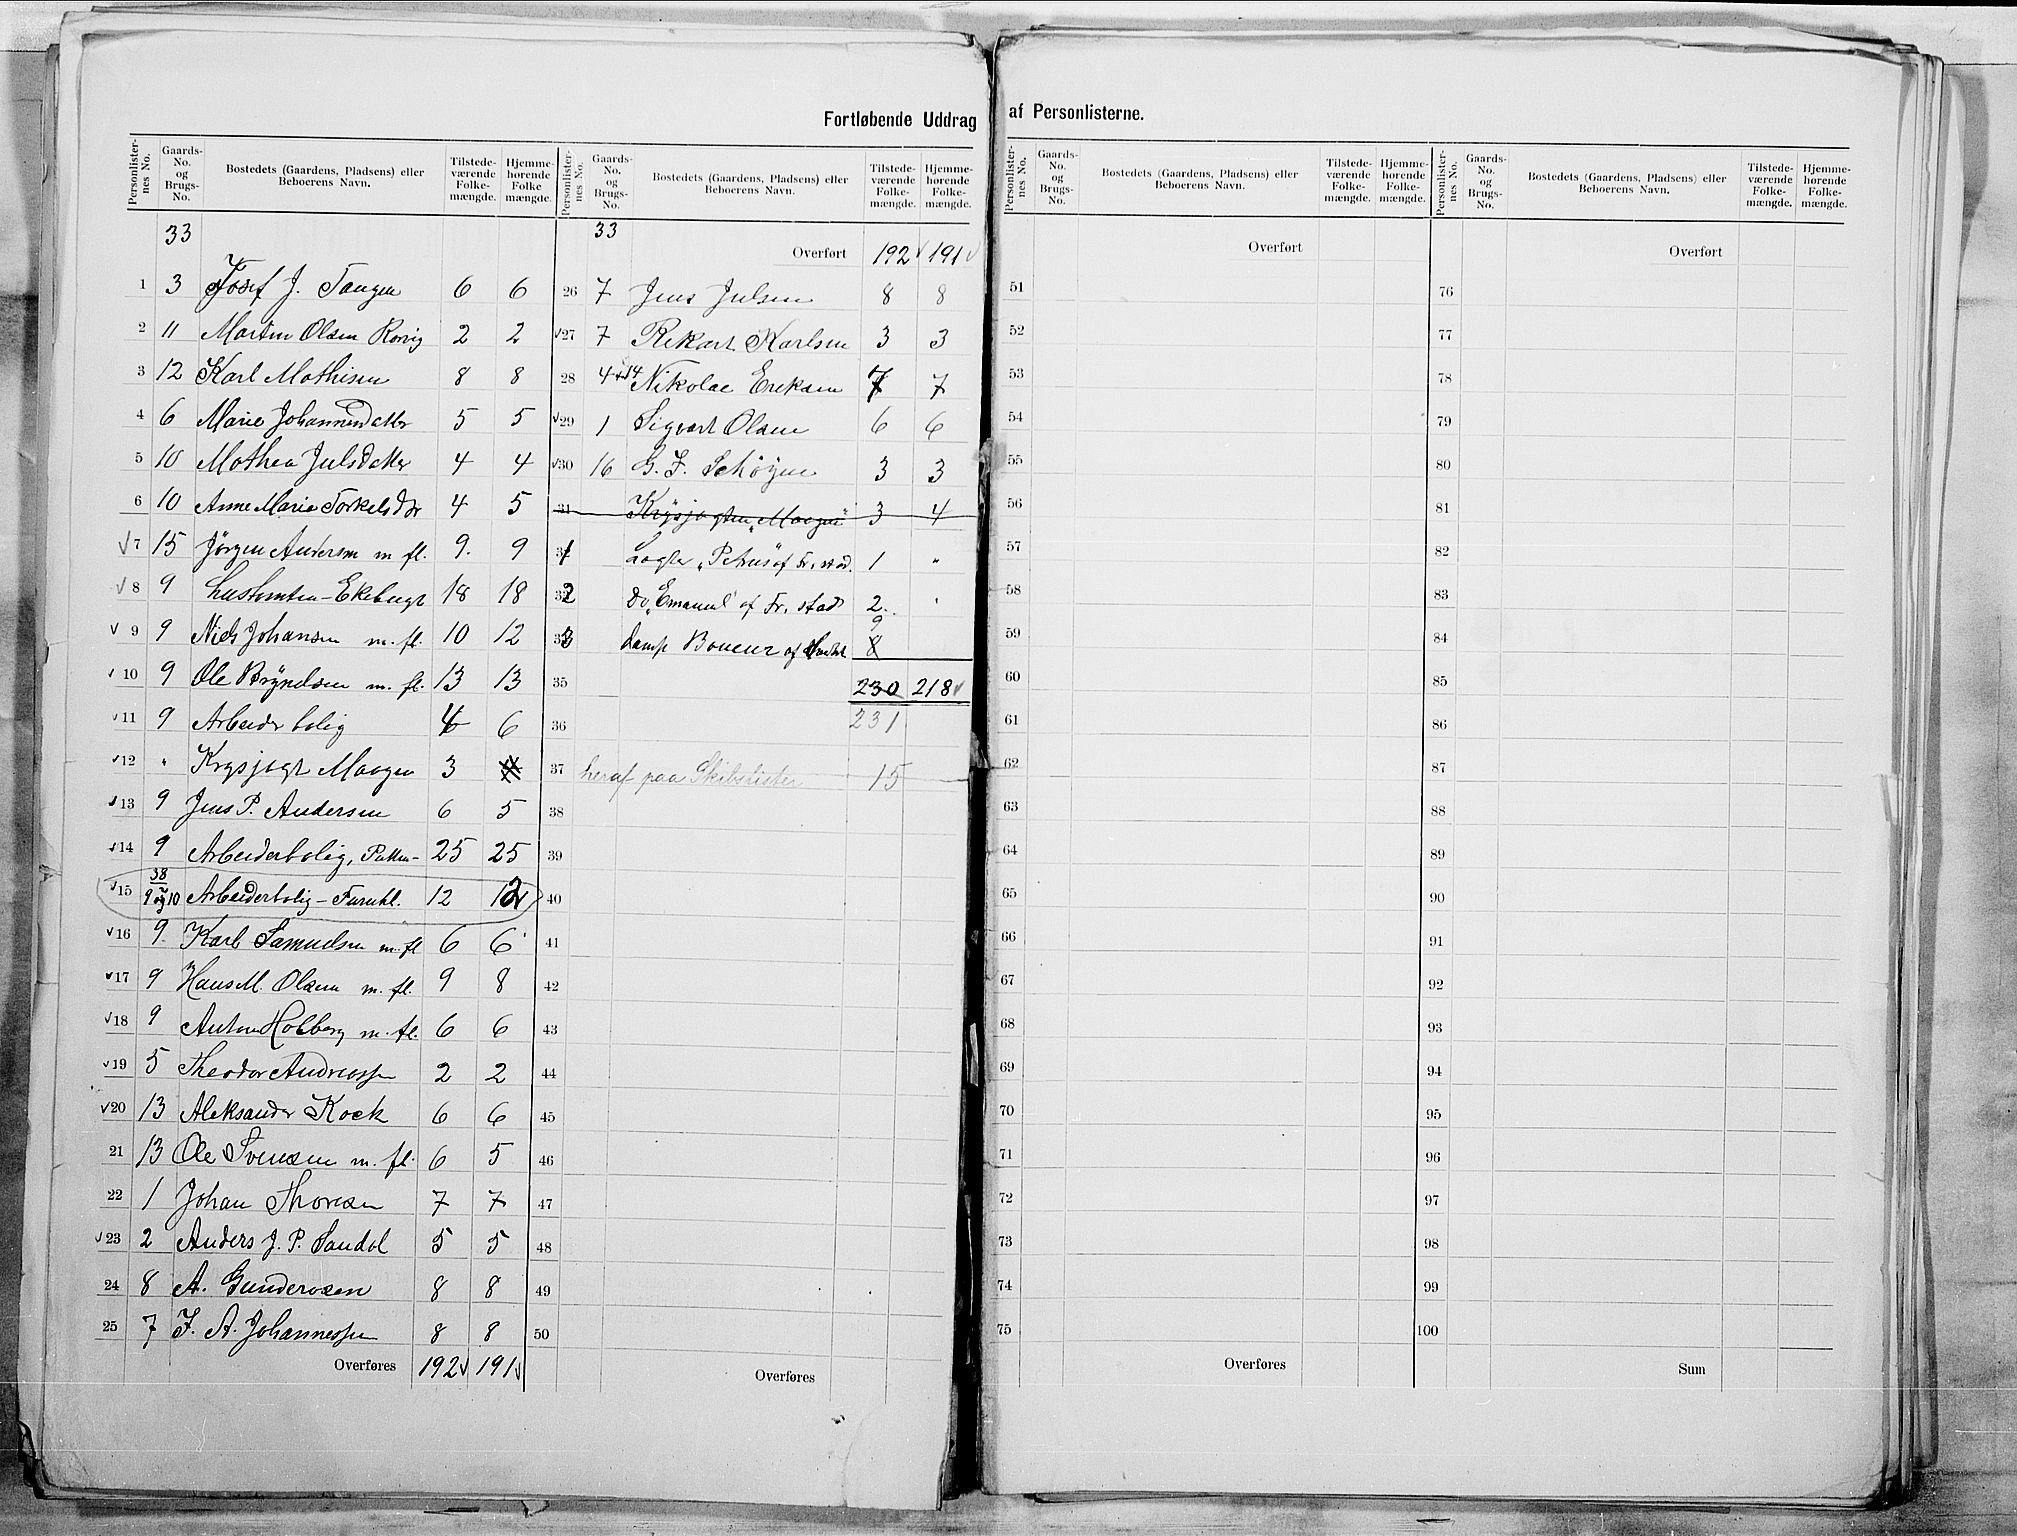 Fortløbende Uddrag af Personlisterne.
Personlister-nes No. Gaards-No. og Brugs-No. Bostedets (Gaardens, Pladsens) eller Beboerens Navn. Tilstede-værende Folke-mængde. Hjemme-hørende Folke mængde.
33
1 3 Josef J. Tangen 6 6
2 11 Martin Olsen Rørvig 2 2
3 12 Karl Mathisen 8 8
4 6 Marie Johannesdatter 5 5
5 10 Mathea Julsdatter 4 4
6 10 Anne Marie Torkelsdr 4 5
7 15 Jörgen Andersen m fl. 9. 9
8 9 Lysthomten-Ekeberget 18 18
9 9 Niels Johansen m. fl. 10 12
10 9 Ole Brynelsen m. fl. 13 13
11 9 Arbeiderbolig 4 6
12 " Krysjagt Maagen 3
13 9 Jens P. Andersen 6 5
14 9 Arbeiderbolig, 25 25
15 38 9 og 10 Arbeiderbolig - Furuhl. 12 12
16 9 Karl Samuelsen m. fl 6 6
17 9 Hans M. Olsen m. fl. 9 8
18 9 Anton Holberg m. fl. 6 6
19 5 Theodor Andreassen 2 2
20 13 Aleksander Kock 6 6
21 13 Ole Svensen m. fl. 6 5
22 1 Johan Thoresen 7 7
23 2 Anders J. P. Sandøl 5 5
24 8 A. Gundersen 8 8
25 7 F. A. Johannessen 8 8
Overføres 192 191
Personlister-nes No. Gaards-No. og Brugs-No. Bostedets (Gaardens, Pladsens) eller Beboerens Navn. Tilstede-værende Folke-mængde. Hjemme-hørende Folke-mængde.
33 Overført 192 191
26 7 Jens Julsen 8 8
27 7 Rikart Karlsen 3 3
28 4+14 Nikolae Eriksen 7 7
29 1 Sigvart Olsen 6 6
30 16 G. F. Schöyen 3 3
31 Krysjagten "Maagen" 3 4
31 Logter "Petrus" af Fr. stad. 1 "
32 Do "Emanuel" af Fr. stad 2. "
33 Damp af 9 8
35 230 218
36 231
37 heraf paa Skibslister 15
38
39
40
41
42
43
44
45
46
47
48
49
50
Overføres
Personlister-nes No. Gaards-No. og Brugs-No. Bostedets (Gaardens, Pladsens) eller Beboerens Navn. Tilstede-værende Folke-mængde. Hjemme-hørende Folke-mængde.
Overført
51
52
53
54
55
56
57
58
59
60
61
62
63
64
65
66
67
68
69
70
71
72
73
74
75
Overføres
Personlister-nes No. Gaards-No. og Brugs-No. Bostedets (Gaardens, Pladsens) eller Beboerens Navn. Tilstede-værende Folke-mængde. Hjemme-hørende Folke-mængde.
Overført
76
77
78
79
80
81
82
83
84
85
86
87
88
89
90
91
92
93
94
95
96
97
98
99
100
Sum